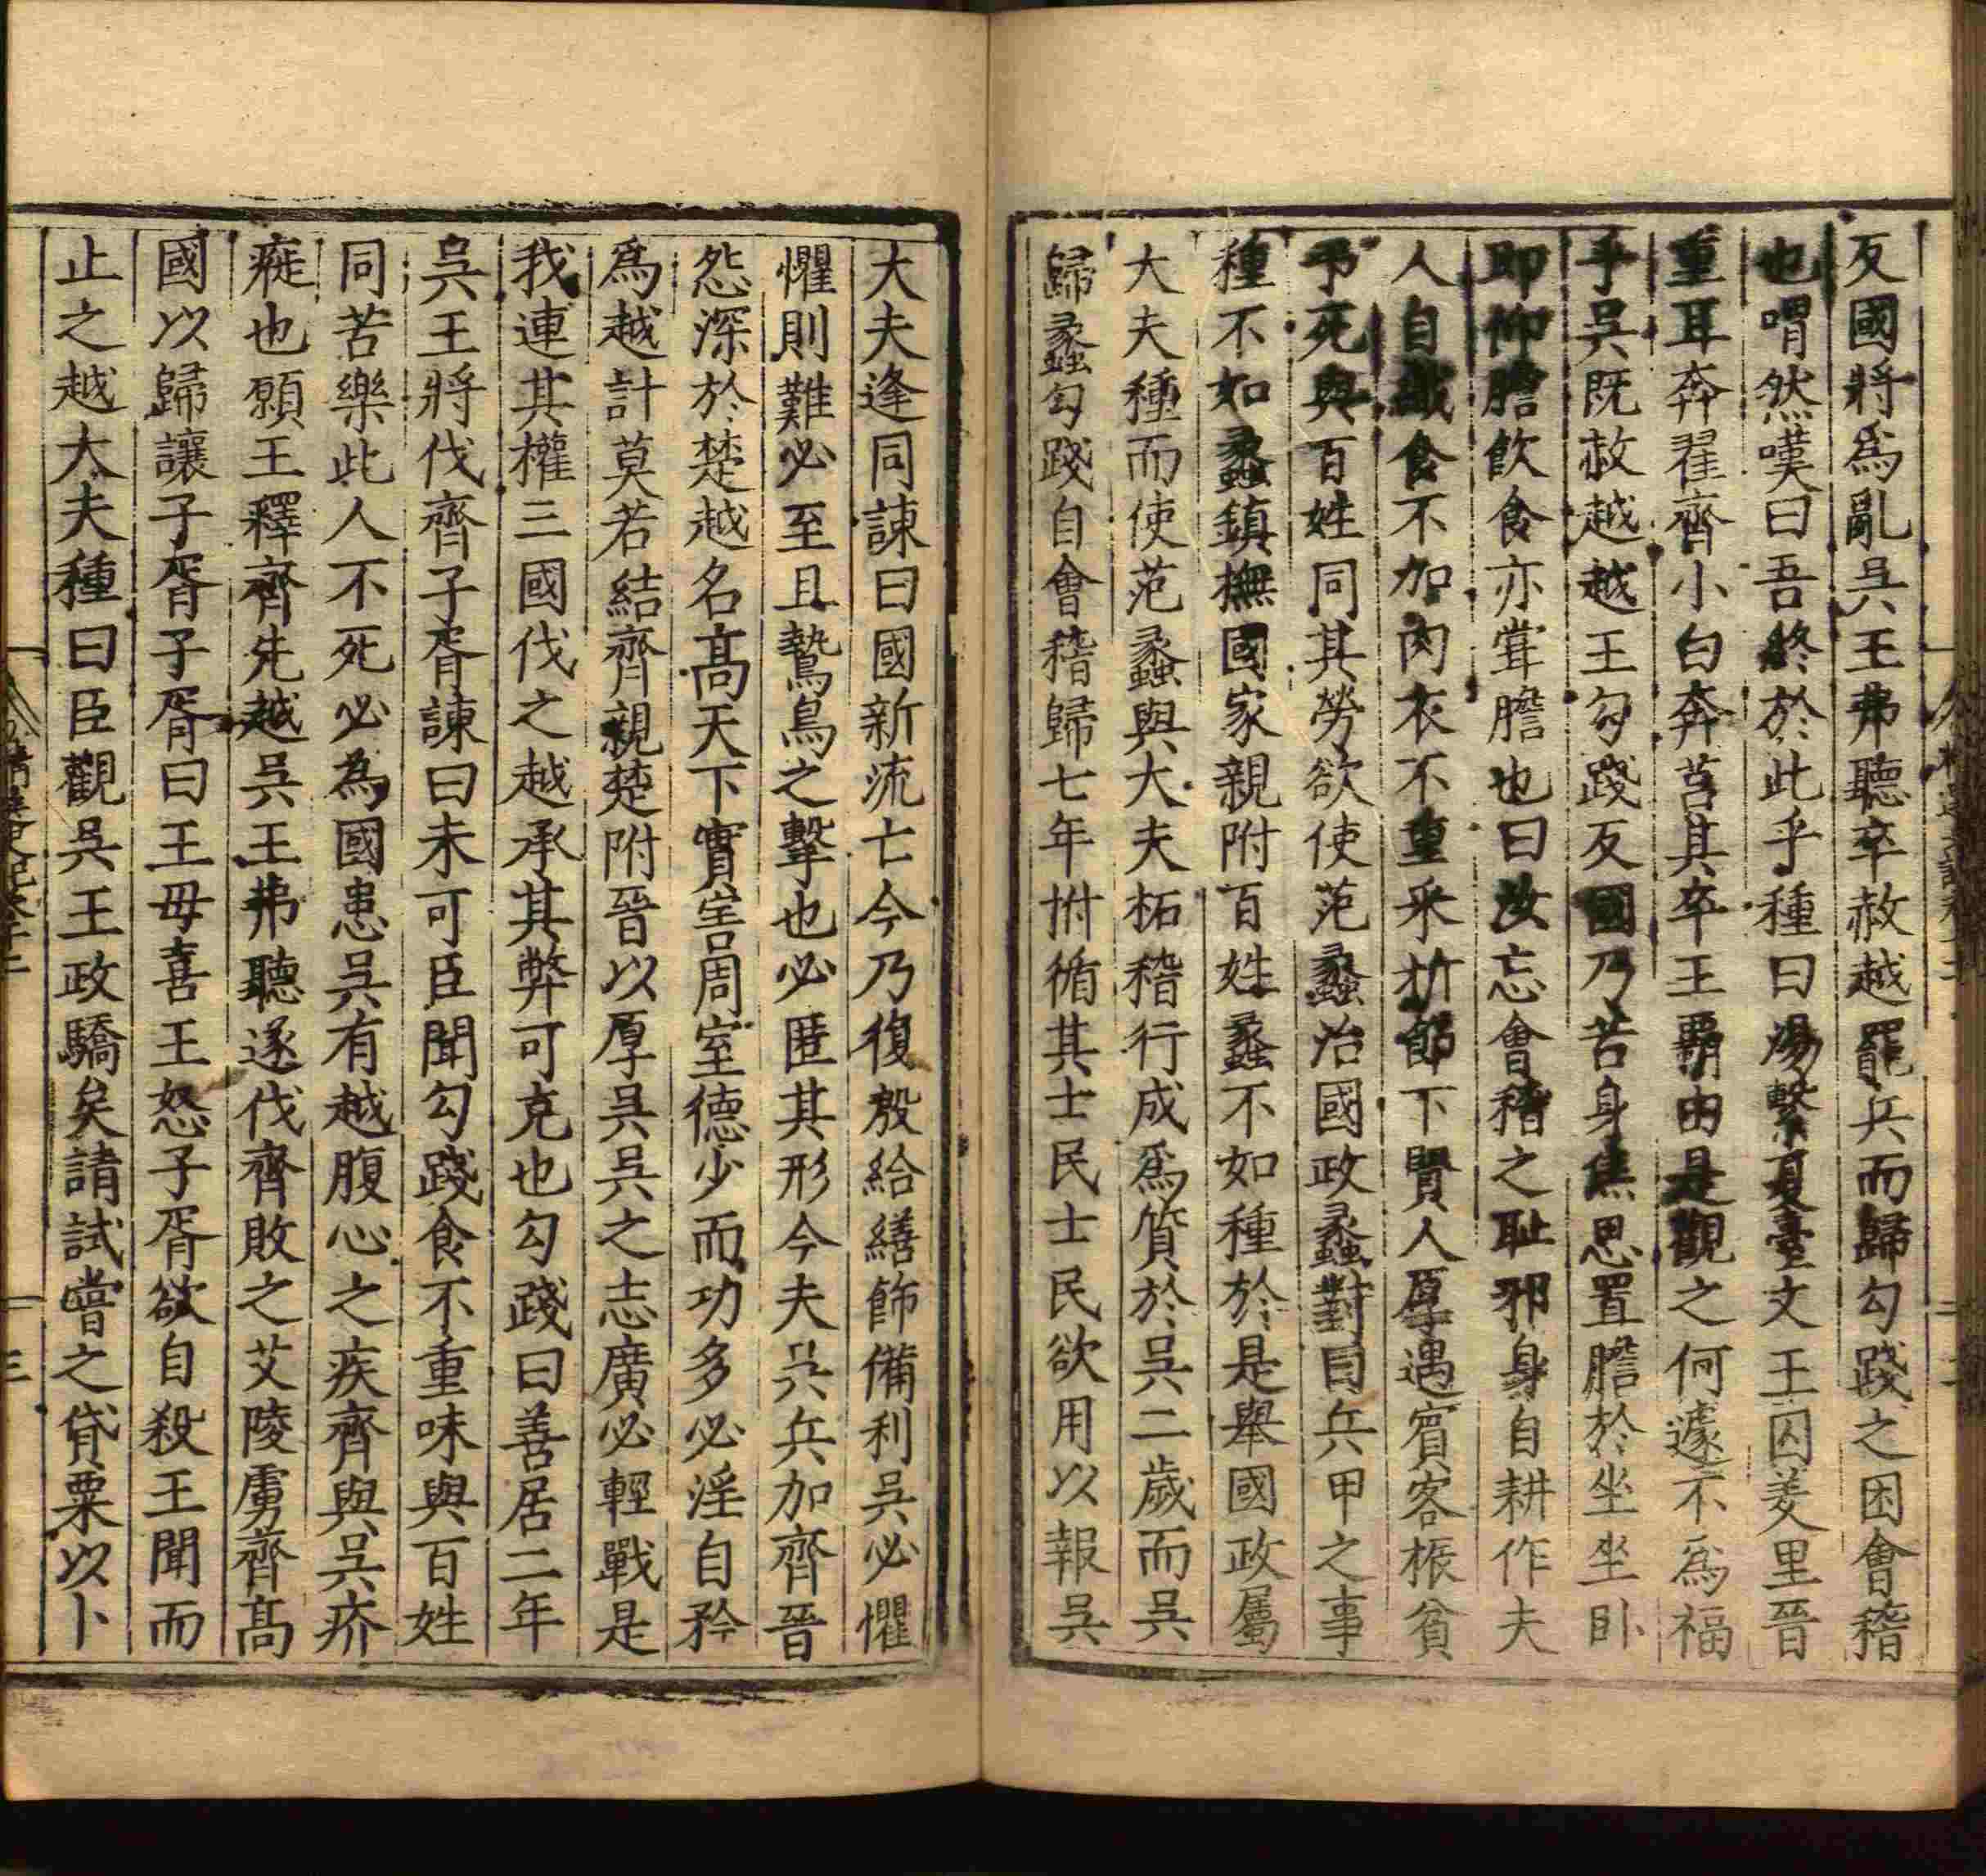 反國將爲亂吳王弗聽卒赦越罷兵而歸勾踐之困會稽
也喟然嘆曰吾終於此乎種曰湯繫夏臺文王囚羑里晉
重耳奔翟齊小白奔莒其卒王霸由是觀之何遽不爲福
乎吳既赦越越王勾踐反國乃苦身焦思置膽於坐坐臥
即仰膽飲食亦甞膽也曰汝忘會稽之恥邪身自耕作夫
人自織食不加肉衣不重采折節下賢人厚遇賓客振貧
予死與百姓同其勞欲使范蠡治國政蠡對曰兵甲之事
種不如蠡鎮撫國家親附百姓蠡不如種於是舉國政屬
大夫種而使范蠡與大夫柘稽行成爲質於吳二歲而吳
歸蠡勾踐自會稽歸七年拊循其士民士民欲用以報吳
大夫逢同諫曰國新流亡今乃復殷給繕飾備利吳必懼
懼則難必至且鷙鳥之擊也必匿其形今夫吳兵加齊晉
怨深於楚越名高天下實害周室德少而功多必淫自矜
爲越計莫若結齊親楚附晉以厚吳吳之志廣必輕戰是
我連其權三國伐之越承其弊可克也勾踐曰善居二年
吳王將伐齊子胥諫曰未可臣聞勾踐食不重味與百姓
同苦樂此人不死必為國患吳有越腹心之疾齊與吳疥
㾨也願王釋齊先越吳王弗聽遂伐齊敗之艾陵虜齊高
國以歸讓子胥子胥曰王毋喜王怒子胥欲自殺王聞而
止之越大夫種曰臣觀吳王政驕矣請試嘗之貸粟以卜
三